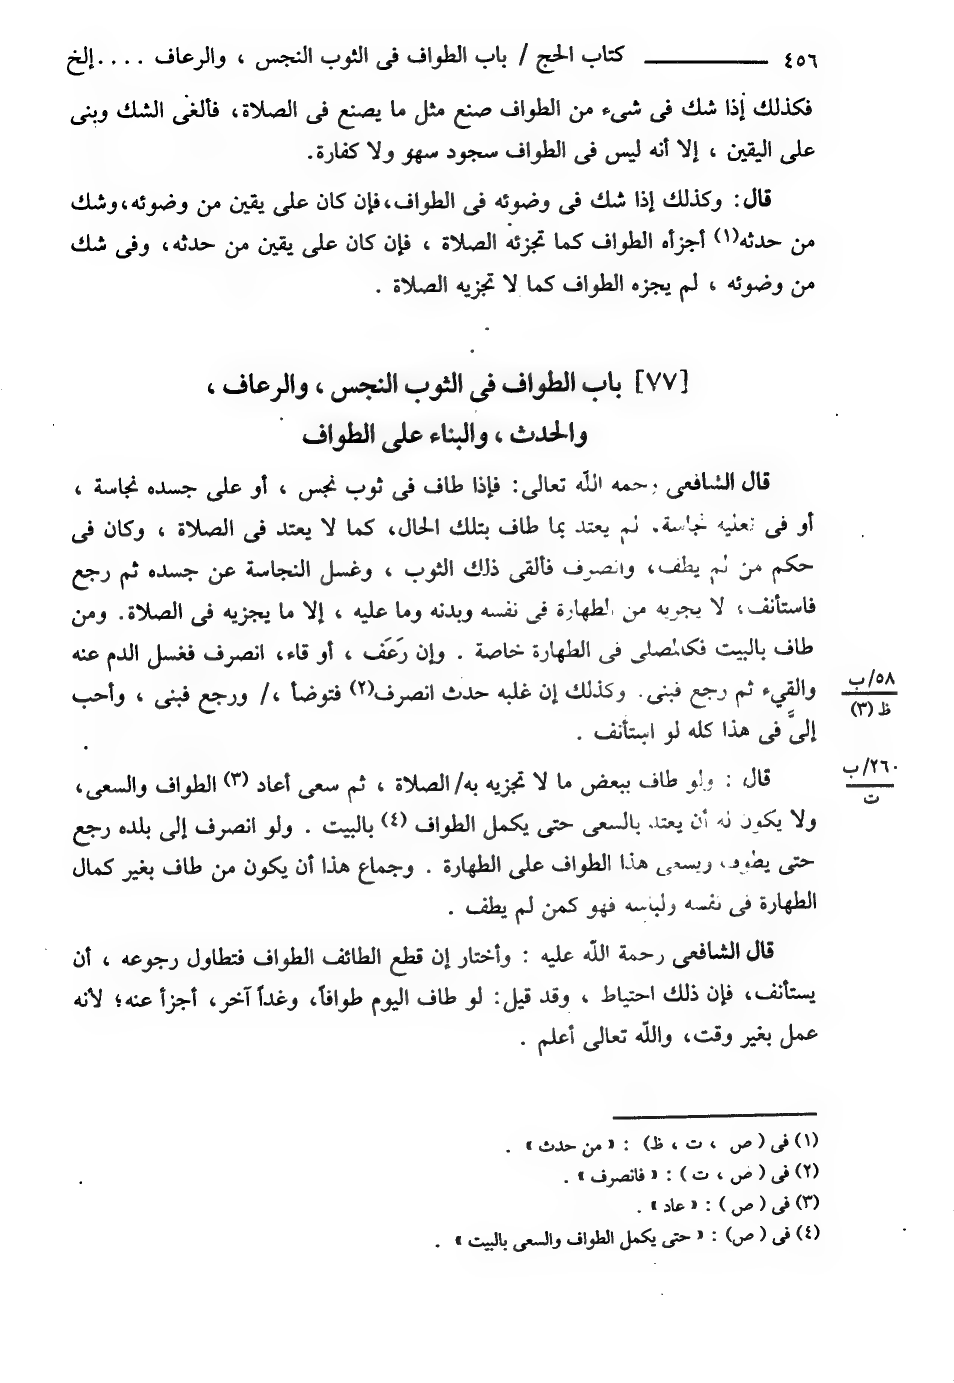 ٤٥٦ ــــــــــ كتاب الحج / باب الطواف فى الثوب النجس ، والرعاف . . . . إلخ
فكذلك إذا شك فى شىء من الطواف صنع مثل ما يصنع فى الصلاة، فألغى الشك وبنى
على اليقين ، إلا أنه ليس فى الطواف سجود سهو ولا كفارة.
قال: وكذلك إذا شك فى وضوئه فى الطواف، فإن كان على يقين من وضوئه، وشك
من حدثه(١) أجزأه الطواف كما تجزئه الصلاة ، فإن كان على يقين من حدثه، وفى شك
من وضوئه ، لم يجزه الطواف كما لا تجزيه الصلاة .
[٧٧] باب الطواف فى الثوب النجس ، والرعاف ،
والحدث ، والبناء على الطواف
قال الشافعى رحمه الله تعالى: فإذا طاف فى ثوب نجس ، أو على جسده نجاسة ،
أو فى نعليه نجاسة، لم يعتد بما طاف بتلك الحال، كما لا يعتد فى الصلاة ، وكان فى
حكم من لم يطف، وانصرف فألقى ذلك الثوب ، وغسل النجاسة عن جسده ثم رجع
فاستأنف، لا يجزيه من الطهارة فى نفسه وبدنه وما عليه ، إلا ما يجزيه فى الصلاة. ومن
طاف بالبيت فكالمصلى فى الطهارة خاصة . وإن رَعَف ، أو قاء، انصرف فغسل الدم عنه
والقيء ثم رجع فبنى. وكذلك إن غلبه حدث انصرف(٢) فتوضأ ،/ ورجع فبنى ، وأحب
٥٨/ب
ظ (٣)
إلىَّ فى هذا كله لو استأنف .
قال : ولو طاف ببعض ما لا تجزيه به/ الصلاة ، ثم سعى أعاد (٣) الطواف والسعى،
٢٦٠/ب
ت
ولا يكون له أن يعتد بالسعى حتى يكمل الطواف (٤) بالبيت . ولو انصرف إلى بلده رجع
حتى يطوف ويسعى هذا الطواف على الطهارة . وجماع هذا أن يكون من طاف بغير كمال
الطهارة فى نفسه ولباسه فهو كمن لم يطف .
قال الشافعى رحمة الله عليه : وأختار إن قطع الطائف الطواف فتطاول رجوعه ، أن
يستأنف، فإن ذلك احتياط ، وقد قيل: لو طاف اليوم طوافاً، وغداً آخر، أجزأ عنه؛ لأنه
عمل بغير وقت، والله تعالى أعلم .
(١) فى ( ص ، ت ، ظ) : « من حدث » .
(٢) فى ( ص ، ت ) : « فانصرف » .
(٣) فى ( ص ) : « عاد » .
(٤) فى ( ص) : « حتى يكمل الطواف والسعى بالبيت » .